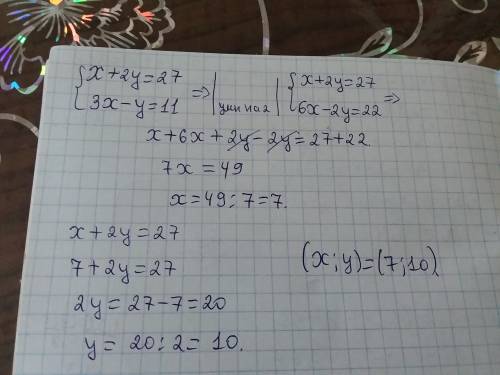 {x+2y=27 => | | {x+2y=27
{3x-y=11 | умн на 2 | {6x-2y=22 =>
x+6x+2y-2y=27+22.
7x=49
x=49:7=7.
x+2y=27
7+2y=27
2y=27-7=20
y=20:2=10.
(x;y)=(7;10).